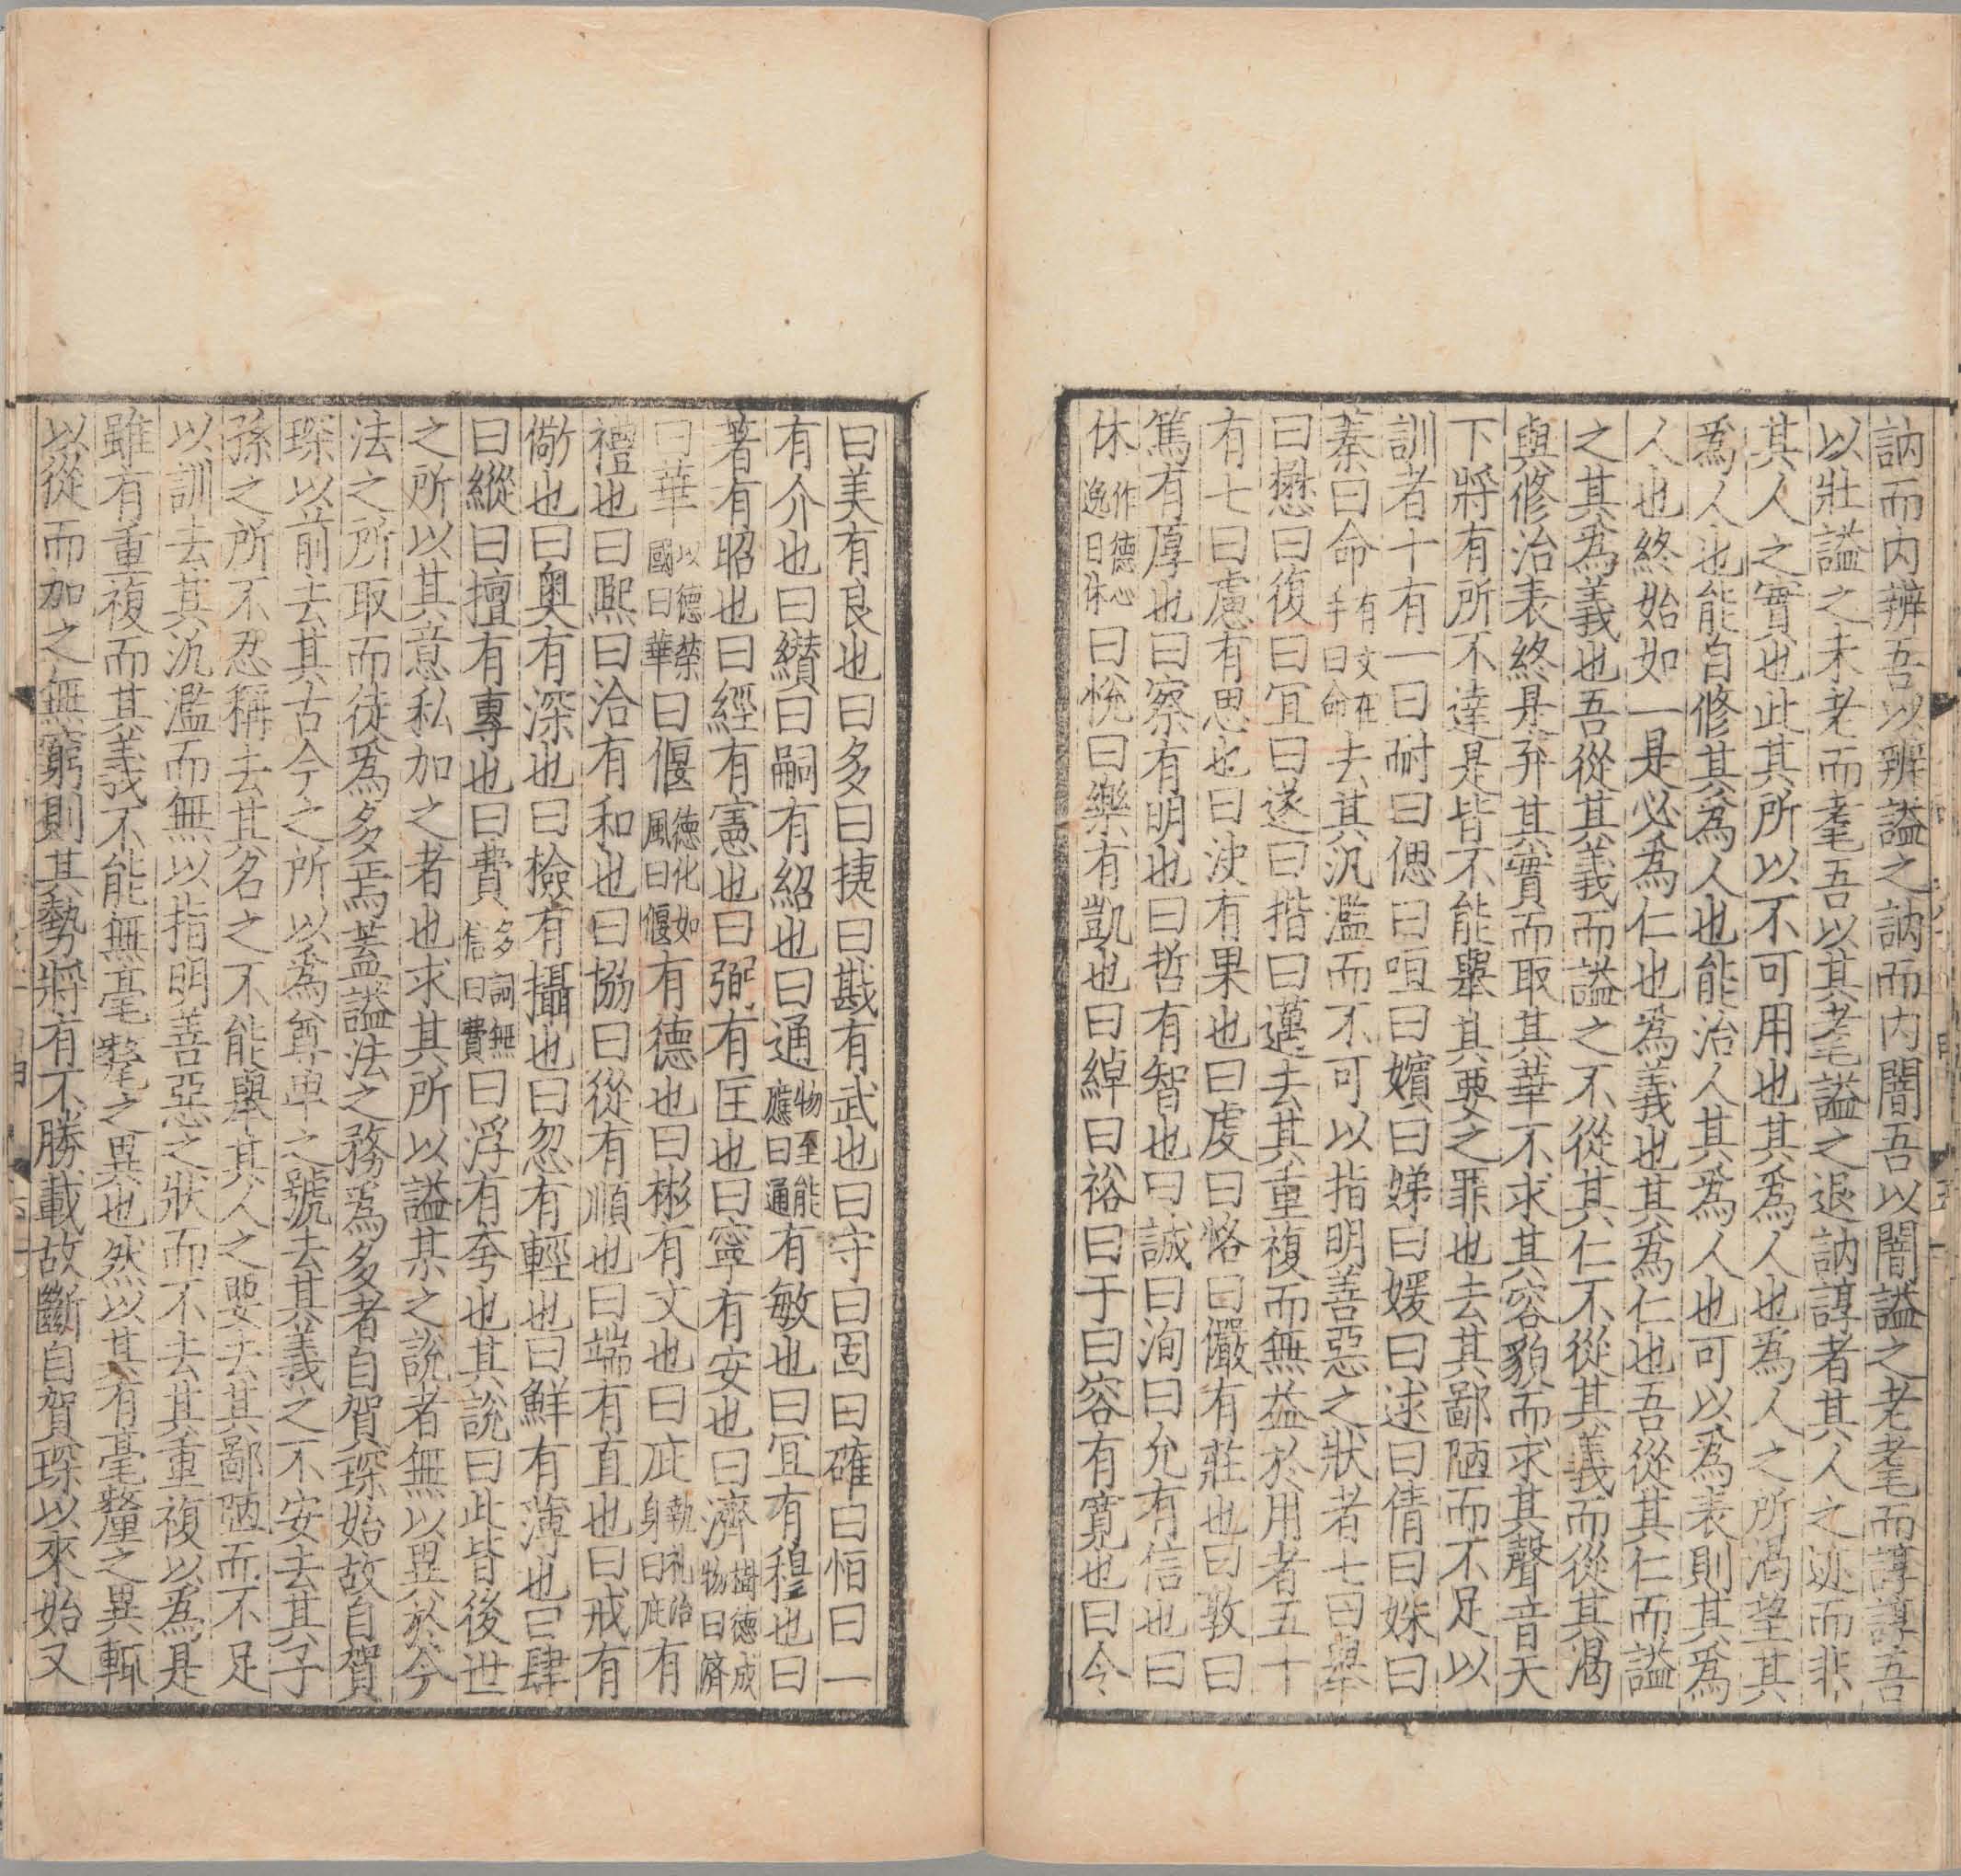 訥而内辨吾以辨謚之訥而内闇吾以闇謚之老耄而諄諄吾
以壯謚之未老而耄吾以其老耄謚之退訥諄者其人之迹而非
其人之實也此其所以不可用也其爲人也爲人之所渴望其
爲人也能自修其爲人也能治人其爲人也可以爲表則其爲
人也終始如一是必爲仁也爲義也其爲仁也吾從其仁而謚
之其爲義也吾從其義而謚之不從其仁不從其義而從其渴
與修治表終是弃其實而取其華不求其容貌而求其聲音天
下將有所不達是皆不能舉其要之罪也去其鄙陋而不足以
訓者十有一曰耐曰偲曰咺曰嬪曰娣曰媛曰逑曰倩曰姝曰
蓁曰命有文在手曰命去其汎濫而不可以指明善惡之狀者七曰舉
曰懋曰復曰宜曰遂曰揩曰邁去其重複而無益於用者五十
有七曰慮有思也曰決有果也曰虔曰恪曰儼有莊也曰敦曰
篤有厚也曰察有明也曰哲有智也曰誠曰洵曰允有信也曰
休作德心逸日休曰悅曰樂有凱也曰綽曰裕曰于曰容有寬也曰令
曰美有良也曰多曰捷曰戡有武也曰守曰固曰確曰恒曰一
有介也曰纘曰嗣有紹也曰通物至能應曰通有敏也曰宜有穆也曰
著有昭也曰經有憲也曰弼有匡也曰寧有安也曰濟樹德成物曰濟
曰華以德榮國曰華曰偃德化如風曰偃有德也曰彬有文也曰庇執礼治身曰庇有
禮也曰熙曰洽有和也曰協曰從有順也曰端有直也曰戒有
儆也曰奥有深也曰檢有攝也曰忽有輕也曰鮮有薄也曰肆
曰縱曰擅有專也曰費多詞無信曰費曰浮有夸也其說曰此皆後世
之所以其意私加之者也求其所以謚其之說者無以異於今
法之所取而徒爲多焉蓋謚法之務爲多者自賀琛始故自賀
琛以前去其古今之所以爲尊卑之號去其義之不安去其子
孫之所不忍稱去其名之不能舉其人之要去其鄙陋而不足
以訓去其汎濫而無以指明善惡之狀而不去其重複以爲是
雖有重複而其義不能無毫氂之異也然以其有毫釐之異輒
以從而加之無窮則其勢將有不勝載故斷自賀琛以來始又